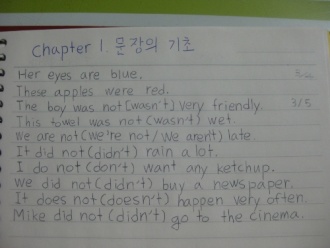 Chapter 1. 문장의 기초
Her eyes are blue.
These apples were red.
The boy was not(wasn't) very friendly. 3/5
This towel was not(wasn't) wet.
We are not(we're not/We aren't) late.
It did not(didn't) rain a lot.
I do not(don't) want any ketchup.
We did not(didn't) buy a newspaper.
It does not(doesn't) happen very often.
Mike did not(didn't) go to the cinema.